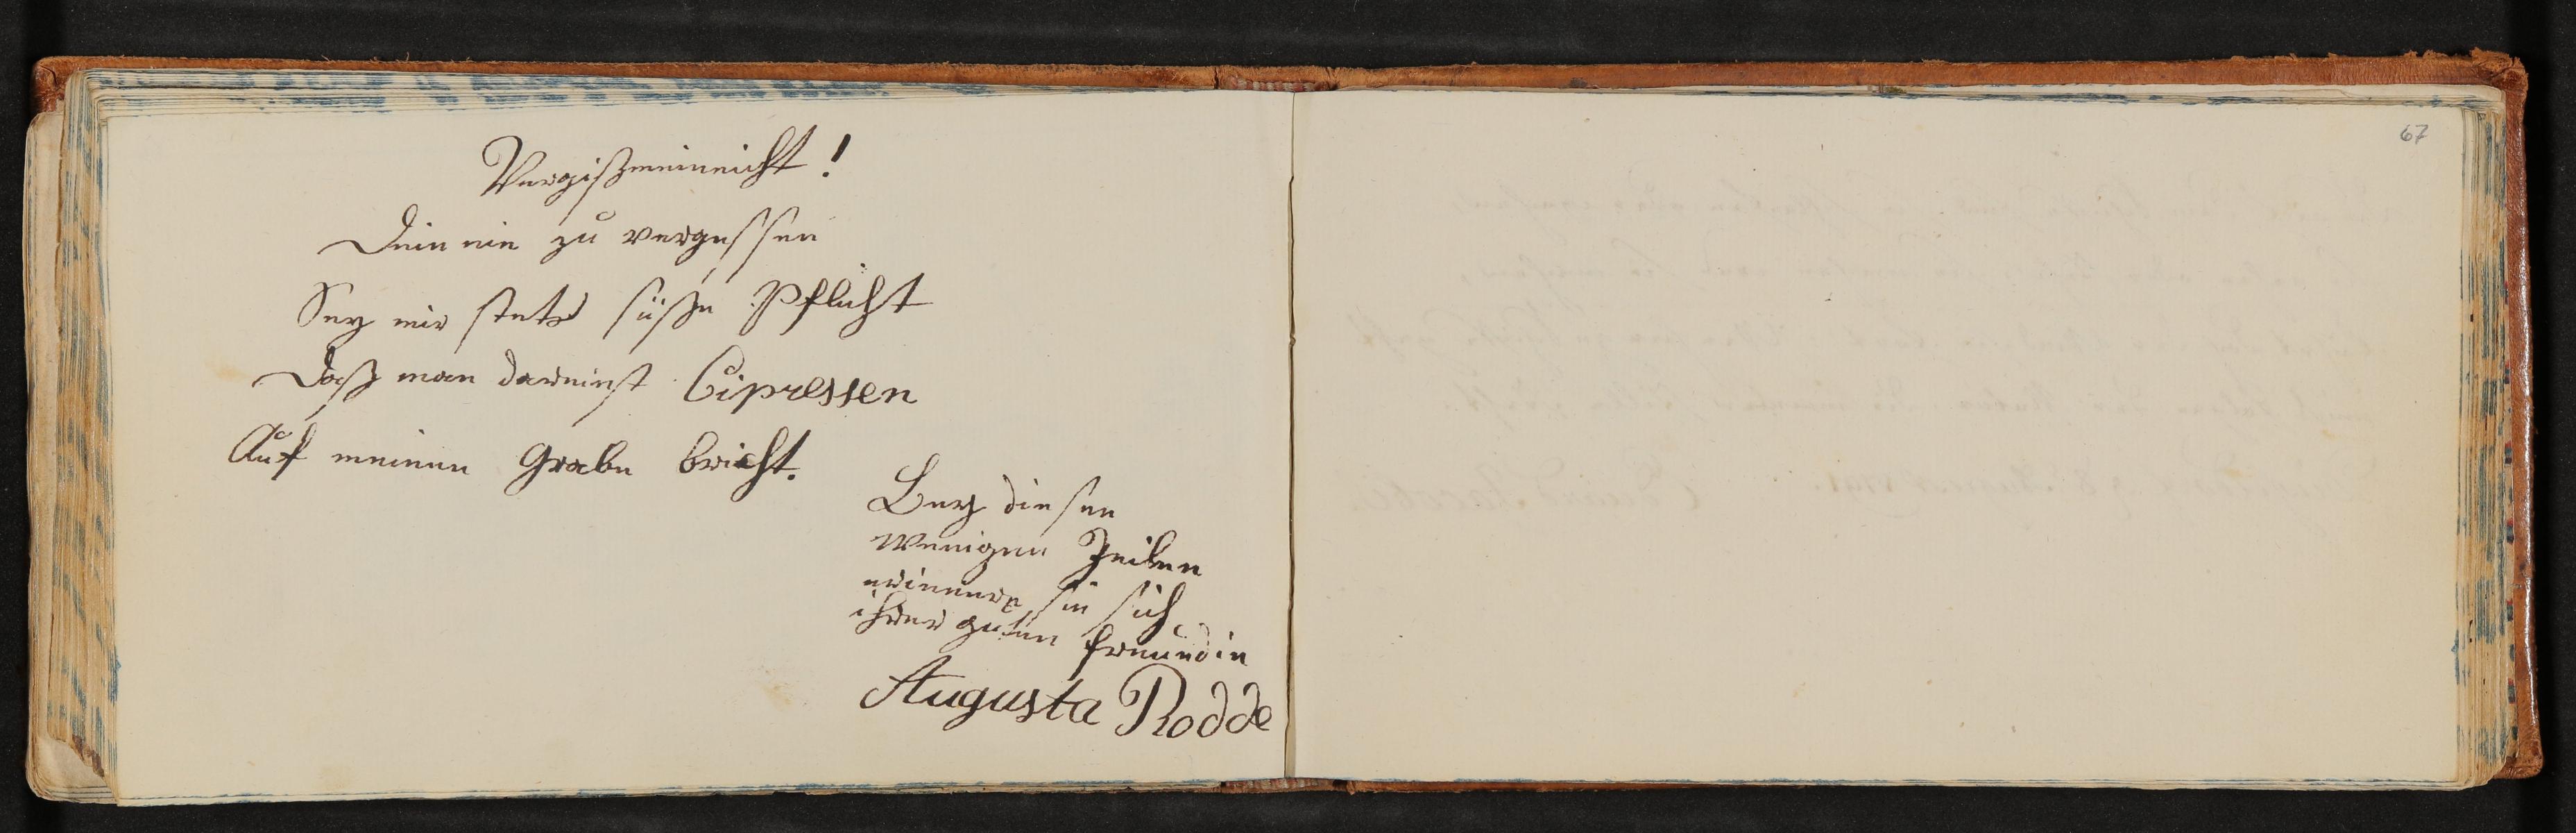 Vergißmeinnicht!
Dein nie zu vergessen
Sey mir stets süße Pflicht
Daß man dereinst Cipressen
Auf meinen Grabe bricht.
Bey diesen
wenigen Zeilen
erinnere sie sich
ihrer guten freundin
Augusta Rodde
67